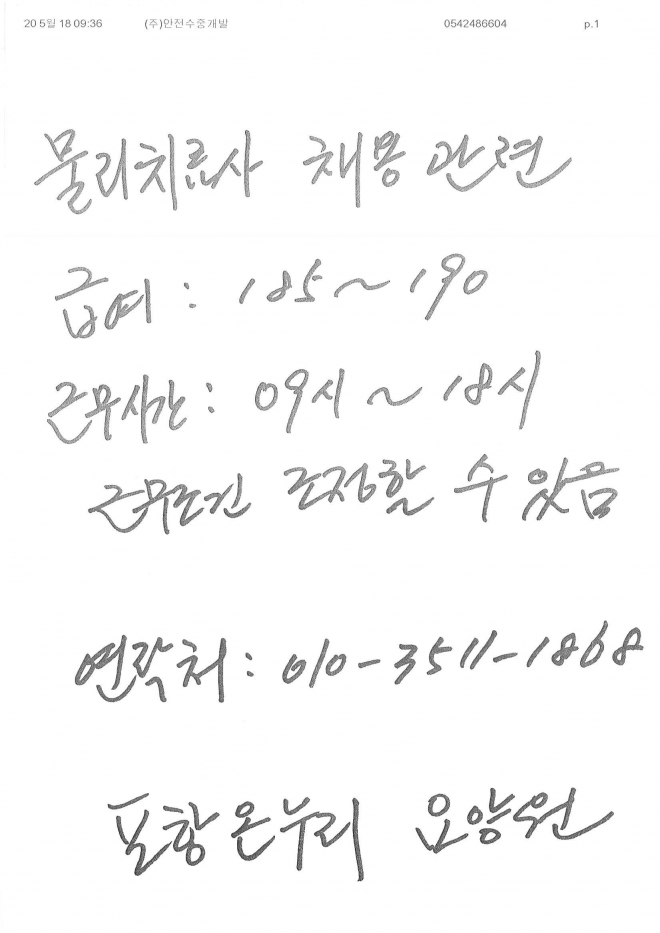 20 5월 18 09:36 (주)안전수중개발 0542486604 p.1
물리치료사 채용 관련
급여 : 185~190
근무시간 : 09시 ~ 18시
근무조건 조정할 수 있음
연락처 : 010-3511-1868
포항온누리 요양원